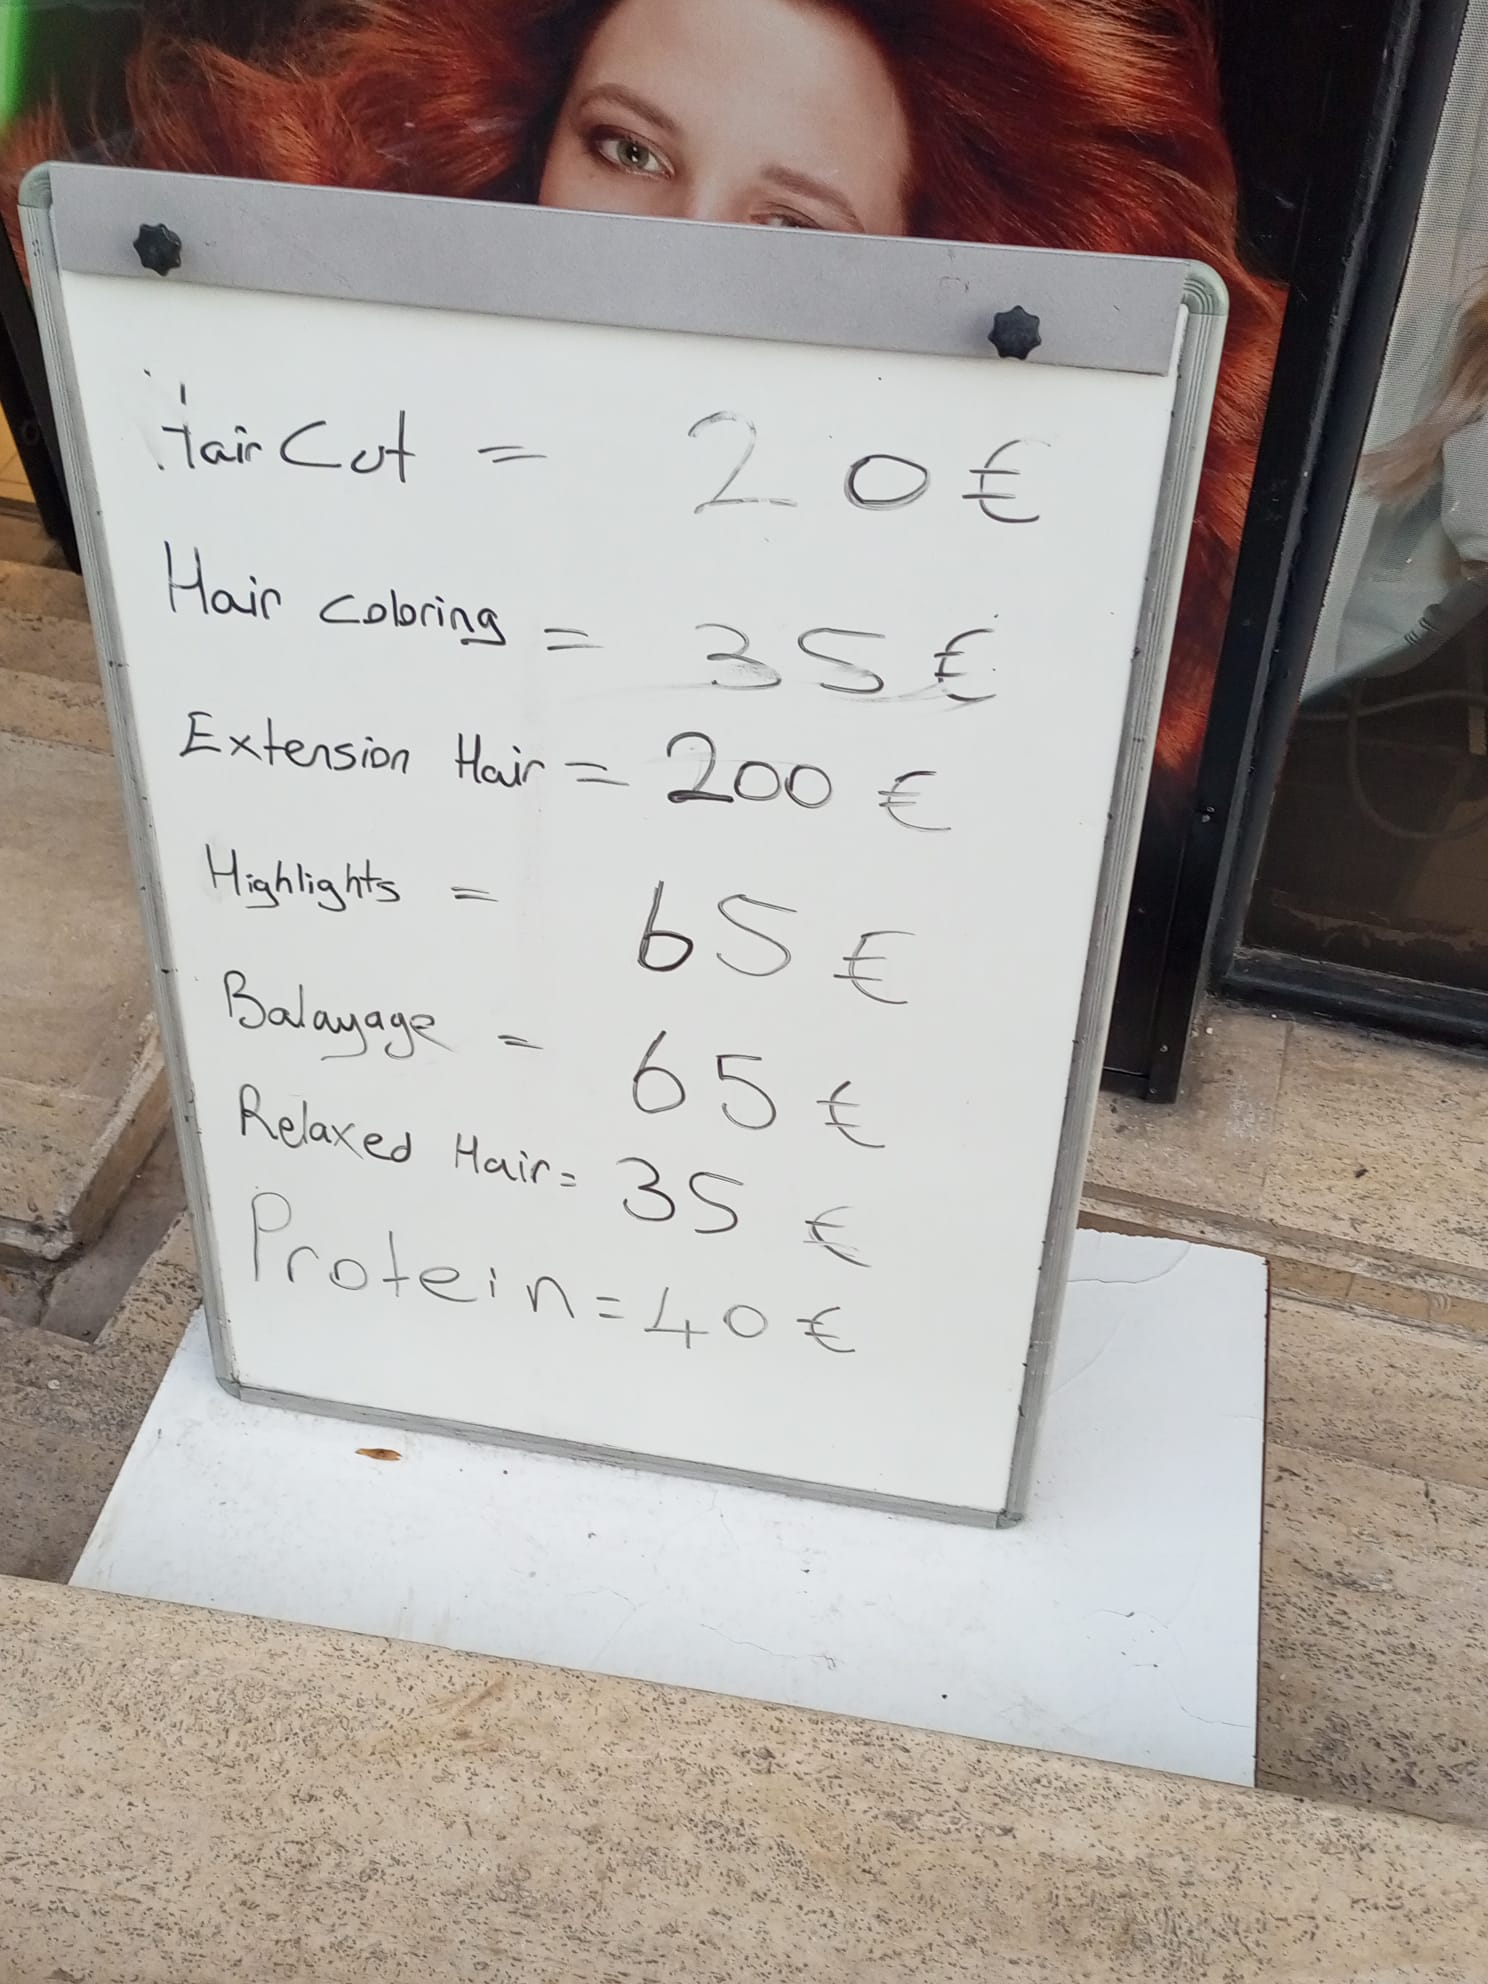 Hair Cut = 20€
Hair coloring = 35€
Extension Hair = 200 €
Highlights = 65 €
Balayage = 65 €
Relaxed Hair = 35 €
Protein = 40 €